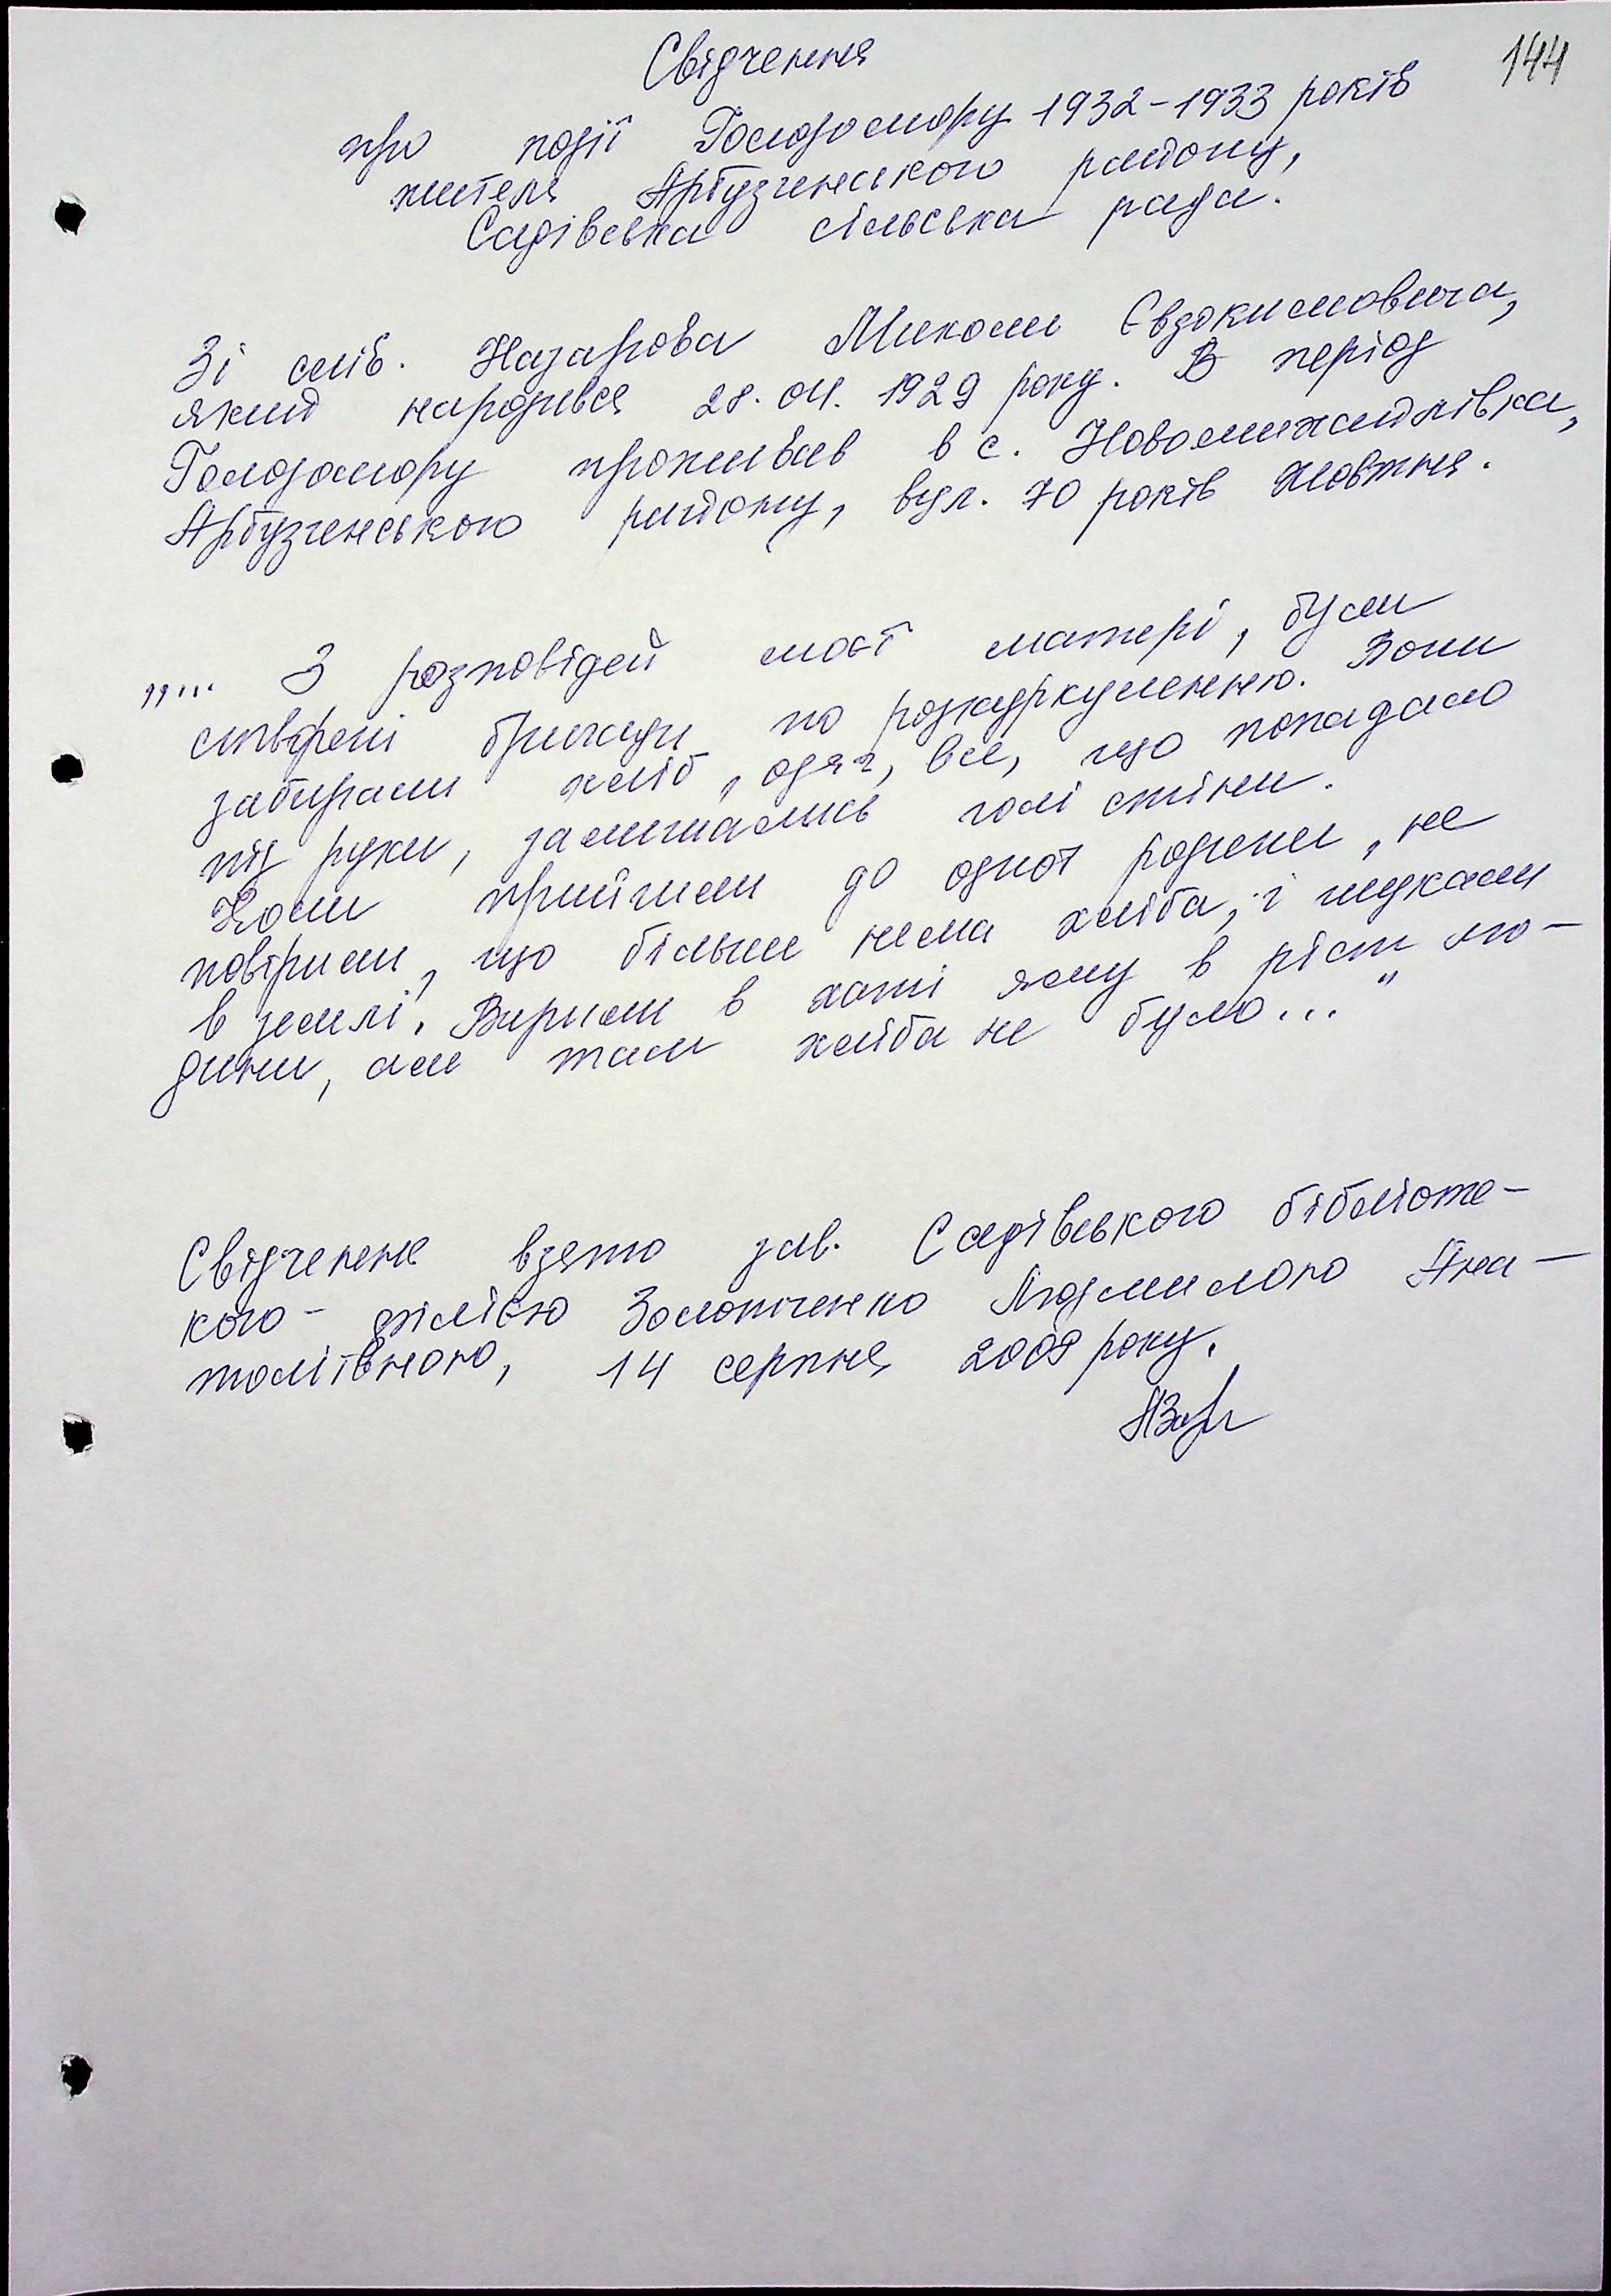 144
Свідчення
про події Голодомору 1932-1933 років
жителя Арбузинського району,
Садівська сільська рада.
Зі слів. Назарова Миколи Євдокимовича,
який народився 28.04.1929 року. В період
Голодомору проживав в с. Новомихайлівка,
Арбузинського району, вул. 70 років Жовтня.
„... З розповідей моєї матері, були
створені бригади по розкуркуленню. Вони
забирали хліб, одяг, все, що попадало
під руки, залишались голі стіни.
Коли прийшли до одної родини, не
повірили, що більше нема хліба, і шукали
в землі. Вирили в хаті яму в ріст лю-
дини, але там хліба не було..."
Свідчення взято зав. Садівського бібліоте-
кого-філією Золотченко Людмилою Ана-
толіївною, 14 серпня 2008 року.